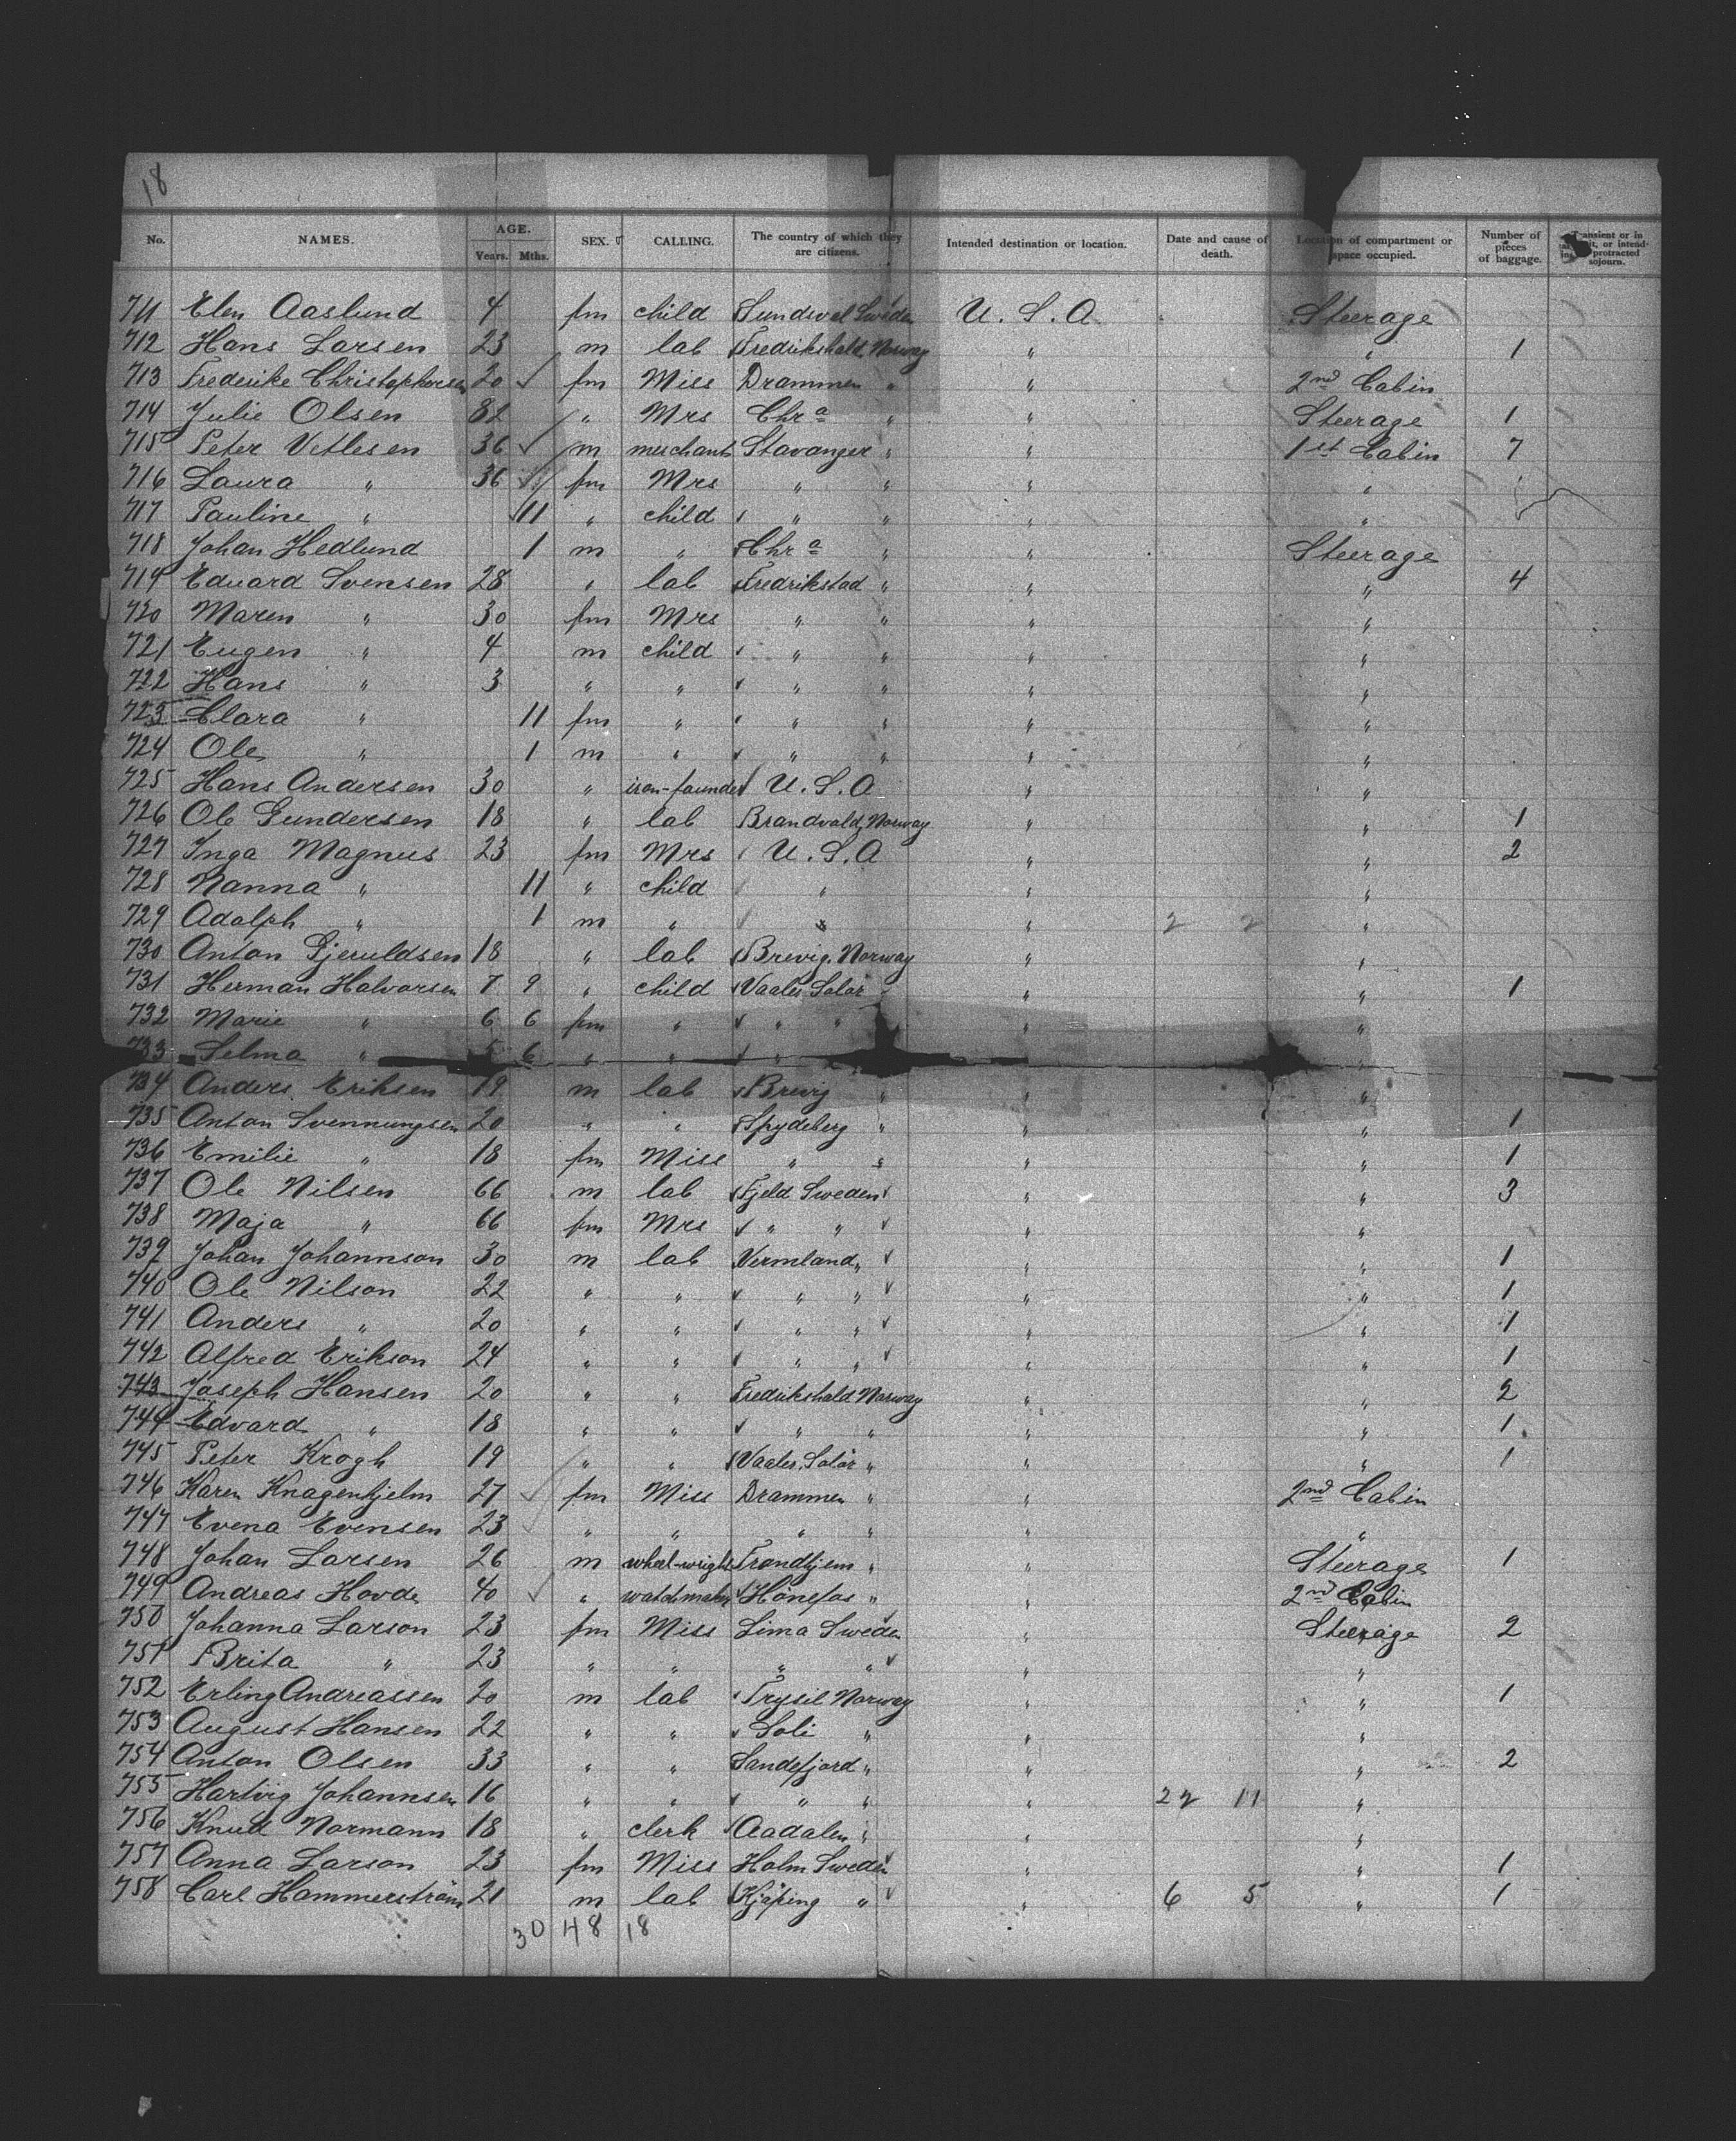 18
No. NAMES. AGE. Years. Mths. SEX. CALLING. The country of which they are citizens. Intended destination or location. Date and cause of death. Location of compartment or space occupied. Number of pieces of baggage. Transient or in transit, or intended protracted sojourn.
711 Elen Aaslund 4 fm child Sundsval Sweden U. S. A Steerage
712 Hans Larsen 23 m lab Fredrikshald, Norway " " 1
713 Frederike Christophersen 20 ✓ fm Miss Drammen " " 2nd Cabin
714 Julie Olsen 82 " Mrs Chra " " Steerage 1
715 Peter Vetlesen 36 ✓ m merchant Stavanger " " 1st Cabin 7
716 Laura " 36 ✓ fm Mrs " " " "
717 Pauline " 11 " child " " " "
718 Johan Hedlund 1 m " Chra " " Steerage
719 Edvard Svensen 28 " lab Fredrikstad " " " 4
720 Maren " 30 fm Mrs " " " "
721 Eugen " 4 m child " " " "
722 Hans " 3 " " " " " "
723 Clara " 11 fm " " " " "
724 Ole " 1 m " " " " "
725 Hans Andersen 30 " iron-founder U. S. A " "
726 Ole Gundersen 18 " lab Brandvald, Norway " " 1
727 Inga Magnus 23 fm Mrs U. S. A " " 2
728 Nanna " 11 " child " " "
729 Adolph " 1 m " " " 2 2 "
730 Anton Gjeruldsen 18 " lab Brevig, Norway " "
731 Herman Halvorsen 7 9 " child Vaaler Solör " " 1
732 Marie " 6 6 fm " " " " "
733 Selma " 5 6 " " " " "
734 Anders Eriksen 19 m lab Brevig " " "
735 Anton Svennungsen 20 " " Spydeberg " " " 1
736 Emilie " 18 fm Miss " " " " 1
737 Ole Nilsen 66 m lab Fjeld Sweden " " 3
738 Maja " 66 fm Mrs " " " "
739 Johan Johannson 30 m lab Vermland " " " 1
740 Ole Nilson 22 " " " " " " 1
741 Anders " 20 " " " " " " 1
742 Alfred Erikson 24 " " " " " " 1
743 Joseph Hansen 20 " " Fredrikshald Norway " " 2
744 Edvard " 18 " " " " " " 1
745 Peter Krogh 19 " " Vaaler, Solör " " " 1
746 Karen Knagenhjelm 27 ✓ fm Miss Drammen " " 2nd Cabin
747 Evena Evensen 23 ✓ " " " " " "
748 Johan Larsen 26 m wheel-wright Trondhjem " " Steerage 1
749 Andreas Hovde 40 ✓ " watchmaker Hönefos " " 2nd Cabin
750 Johanna Larson 23 fm Miss Lima Sweden " Steerage 2
751 Brita " 23 " " " " " "
752 Erling Andreassen 20 m lab Trysil Norway " " 1
753 August Hansen 22 " " Soli " " "
754 Anton Olsen 33 " " Sandefjord " " " 2
755 Hartvig Johannsen 16 " " " " " 22 11 "
756 Knud Normann 18 " clerk Aadalen " " "
757 Anna Larson 23 fm Miss Holm Sweden " " 1
758 Carl Hammerström 21 m lab Kjöping " " 6 5 " 1
30 48 18